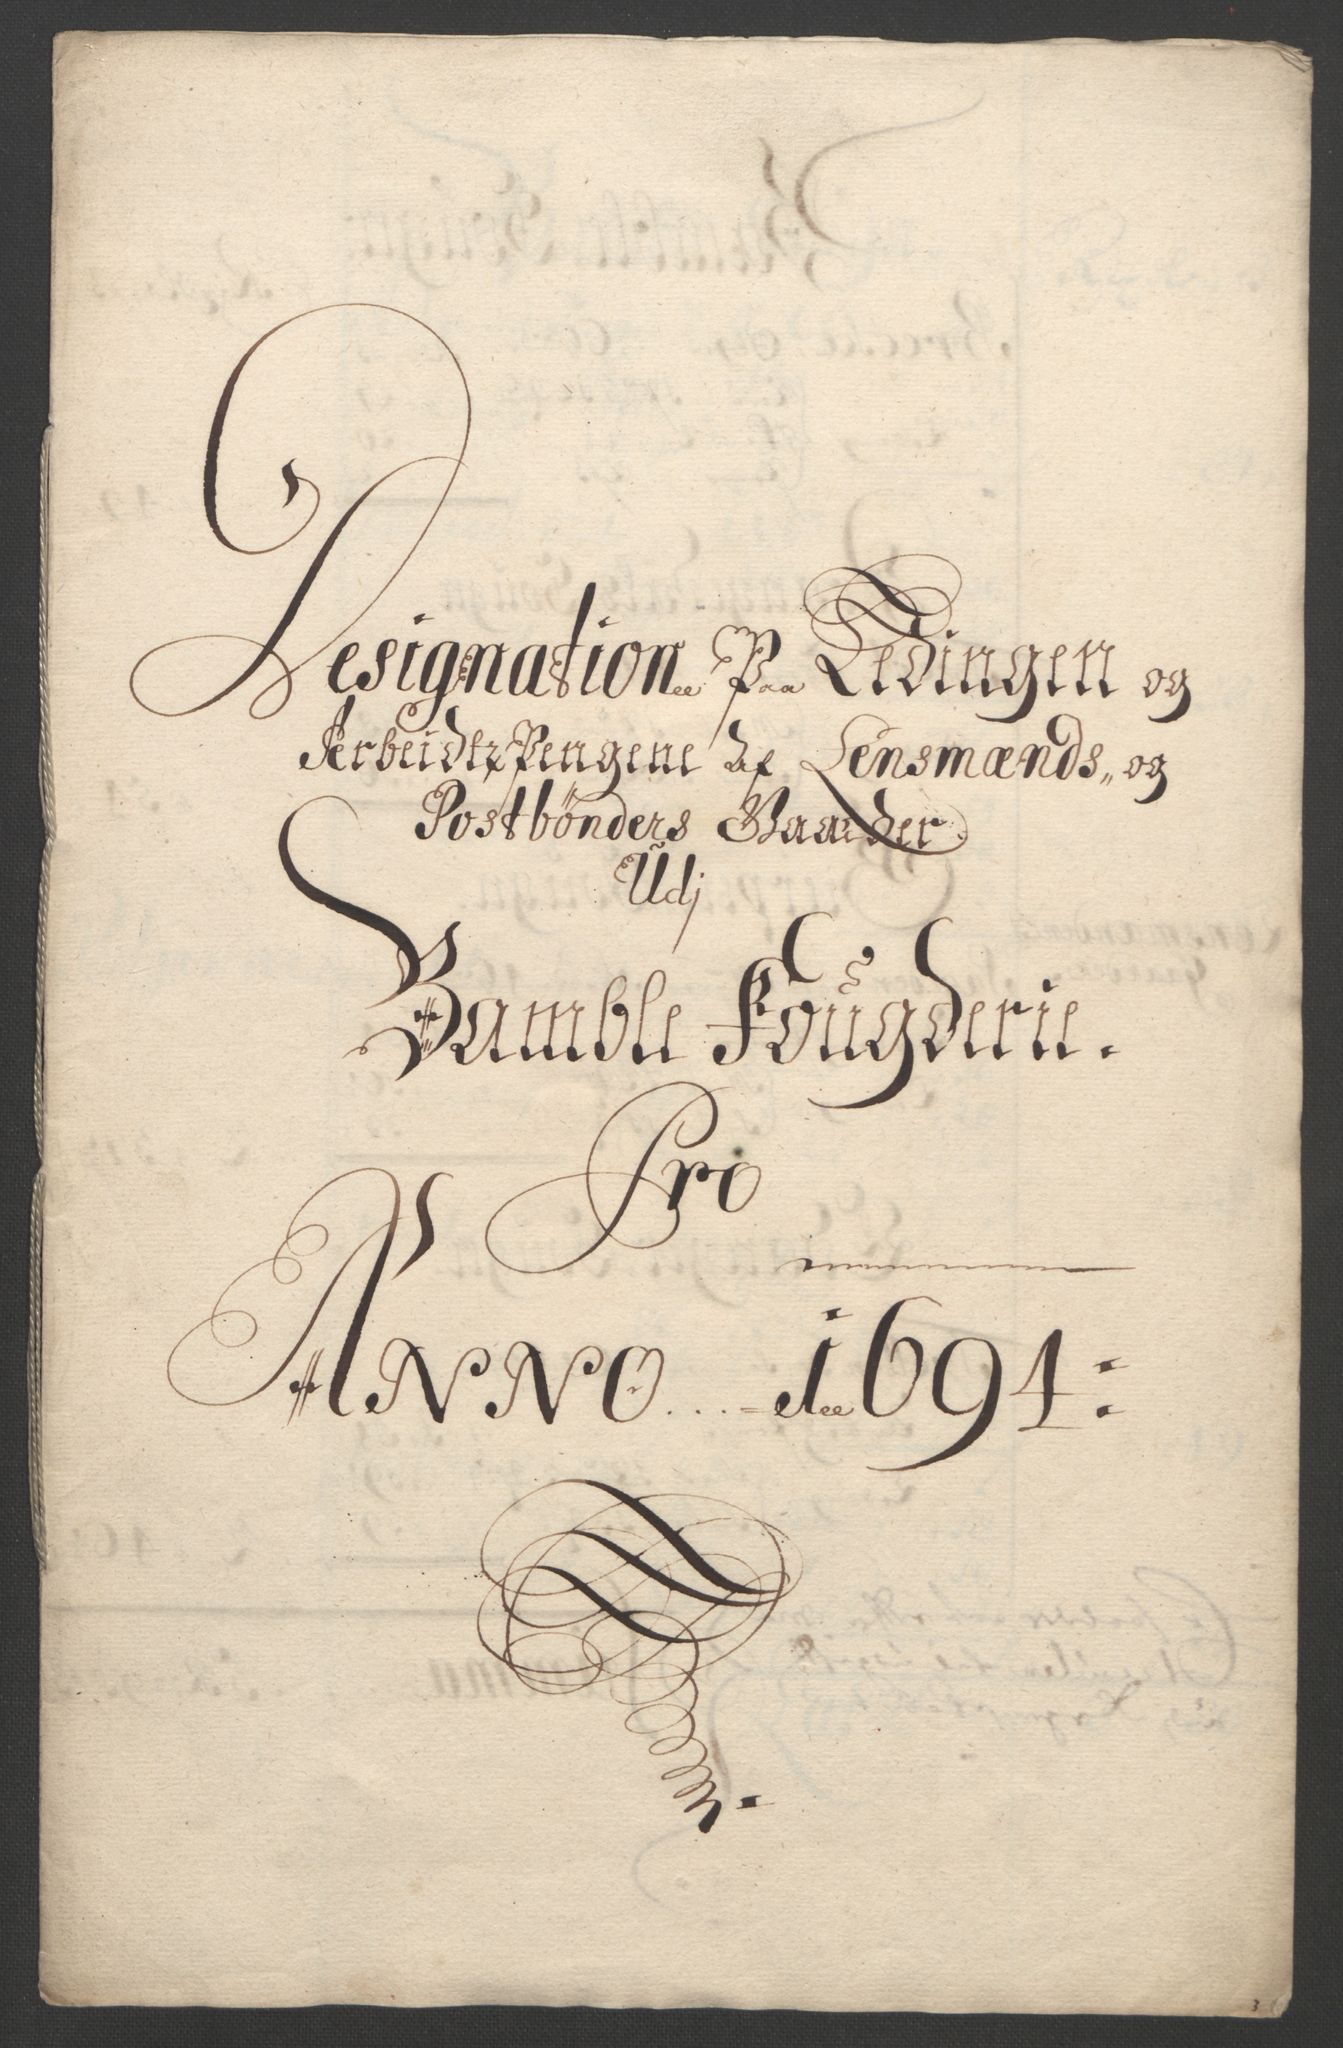 Designation Paa Ledingen og
Arbeidtz Pengene af Lensmænds,, og
Postbönders Gaarder
Udj
Bamble Fougderie.
Pro
ANNO... 1694:
3